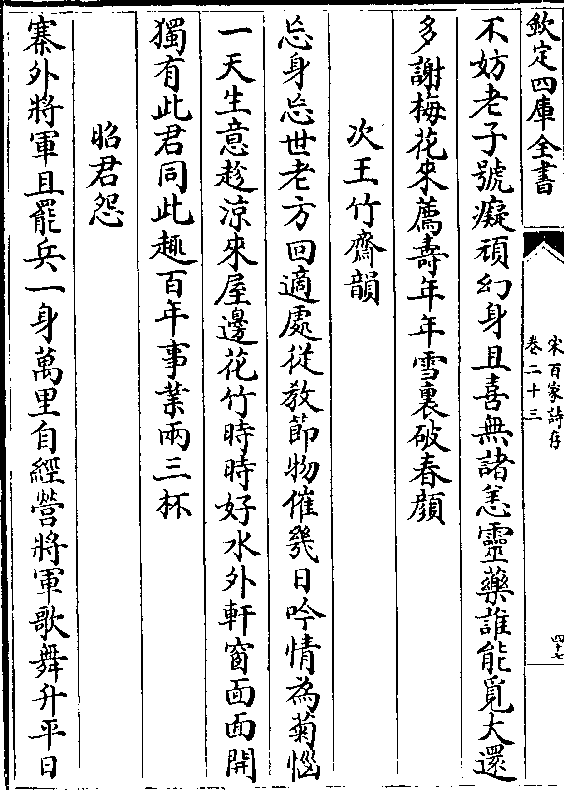 欽定四庫全書
宋百家詩存
卷二十三
四十七
不妨老子號癡頑幻身且喜無諸恙靈藥誰能覓大還
多謝梅花來薦壽年年雪裏破春顔
次王竹齋韻
忘身忘世老方回適處從教節物催幾日吟情為菊惱
一天生意趁涼來屋邊花竹時時好水外軒窗面面開
獨有此君同此趣百年事業兩三杯
昭君怨
寨外將軍且罷兵一身萬里自經營將軍歌舞升平日